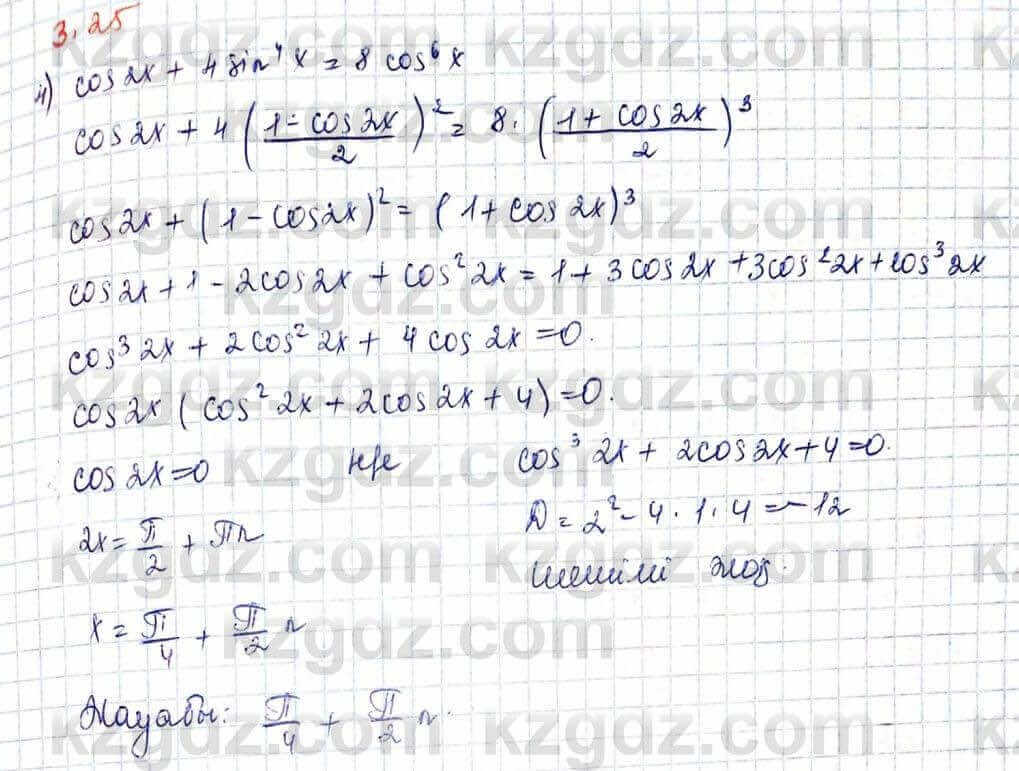 3.25
4) cos 2x + 4 sin⁴ x = 8 cos⁶ x
cos 2x + 4 ((1 - cos 2x)/2)² = 8 · ((1 + cos 2x)/2)³
cos 2x + (1 - cos 2x)² = (1 + cos 2x)³
cos 2x + 1 - 2cos 2x + cos² 2x = 1 + 3 cos 2x + 3cos² 2x + cos³ 2x
cos³ 2x + 2 cos² 2x + 4 cos 2x = 0.
cos 2x (cos² 2x + 2cos 2x + 4) = 0.
cos 2x = 0 нне cos³ 2x + 2cos 2x + 4 = 0.
2x = π/2 + πn D = 2² - 4 · 1 · 4 = -12
x = π/4 + π/2 n шешімі жоқ.
Жауабы: π/4 + π/2 n.
kzgdz.com